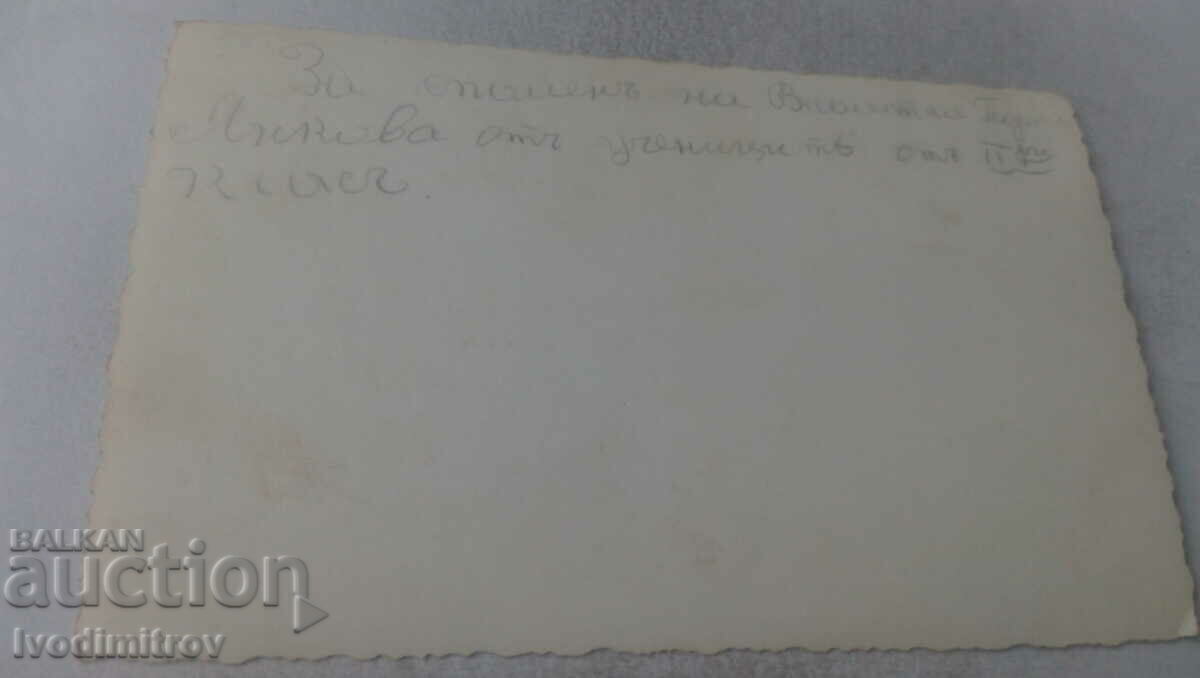 За споменъ на Виолетка
Минкова отъ ученицитѣ отъ II ри
класъ.
BALKAN
auction
Ivodimitrov